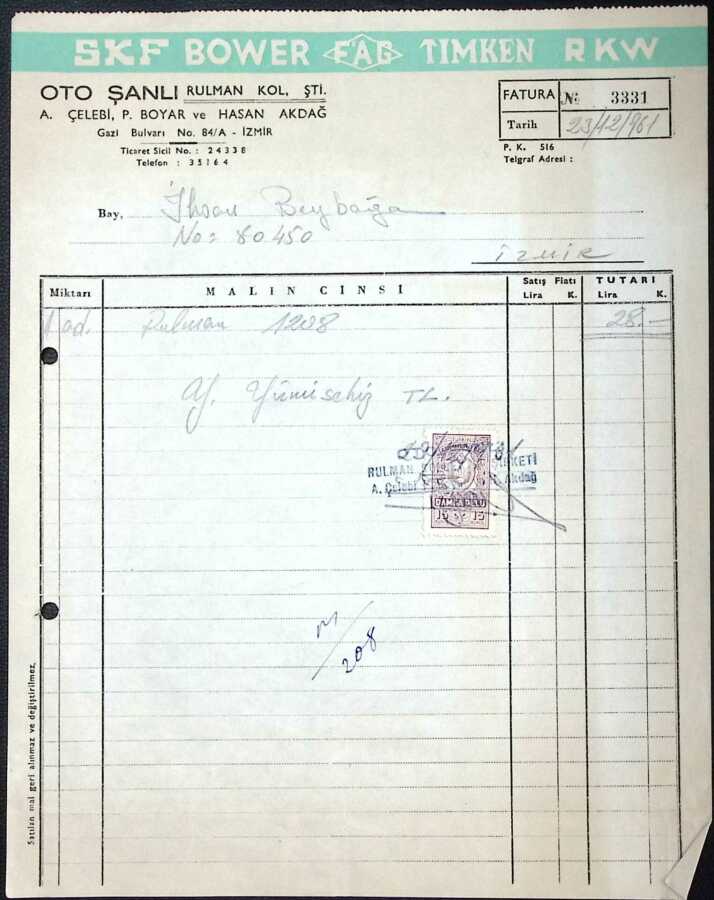 SKF BOWER FAG TIMKEN RKW
OTO ŞANLI RULMAN KOL, ŞTİ.
A. ÇELEBİ, P. BOYAR ve HASAN AKDAĞ
Gazi Bulvarı No. 84/A - İZMİR
Ticaret Sicil No. : 24338
Telefon : 35164
FATURA No 3331
Tarih 23/12/961
P. K. 516
Telgraf Adresi :
Bay, İhsan Beybağa
No: 80450
İzmir
Miktarı MALIN CİNSİ Satış Fiatı TUTARI
Lira K. Lira K.
1 ad. Rulman 1208 28.-
TL.
RULMAN ŞİRKETİ
A. Çelebi Akdağ
DAMGA PULU
15 15
208
Satılan mal geri alınmaz ve değiştirilmez.